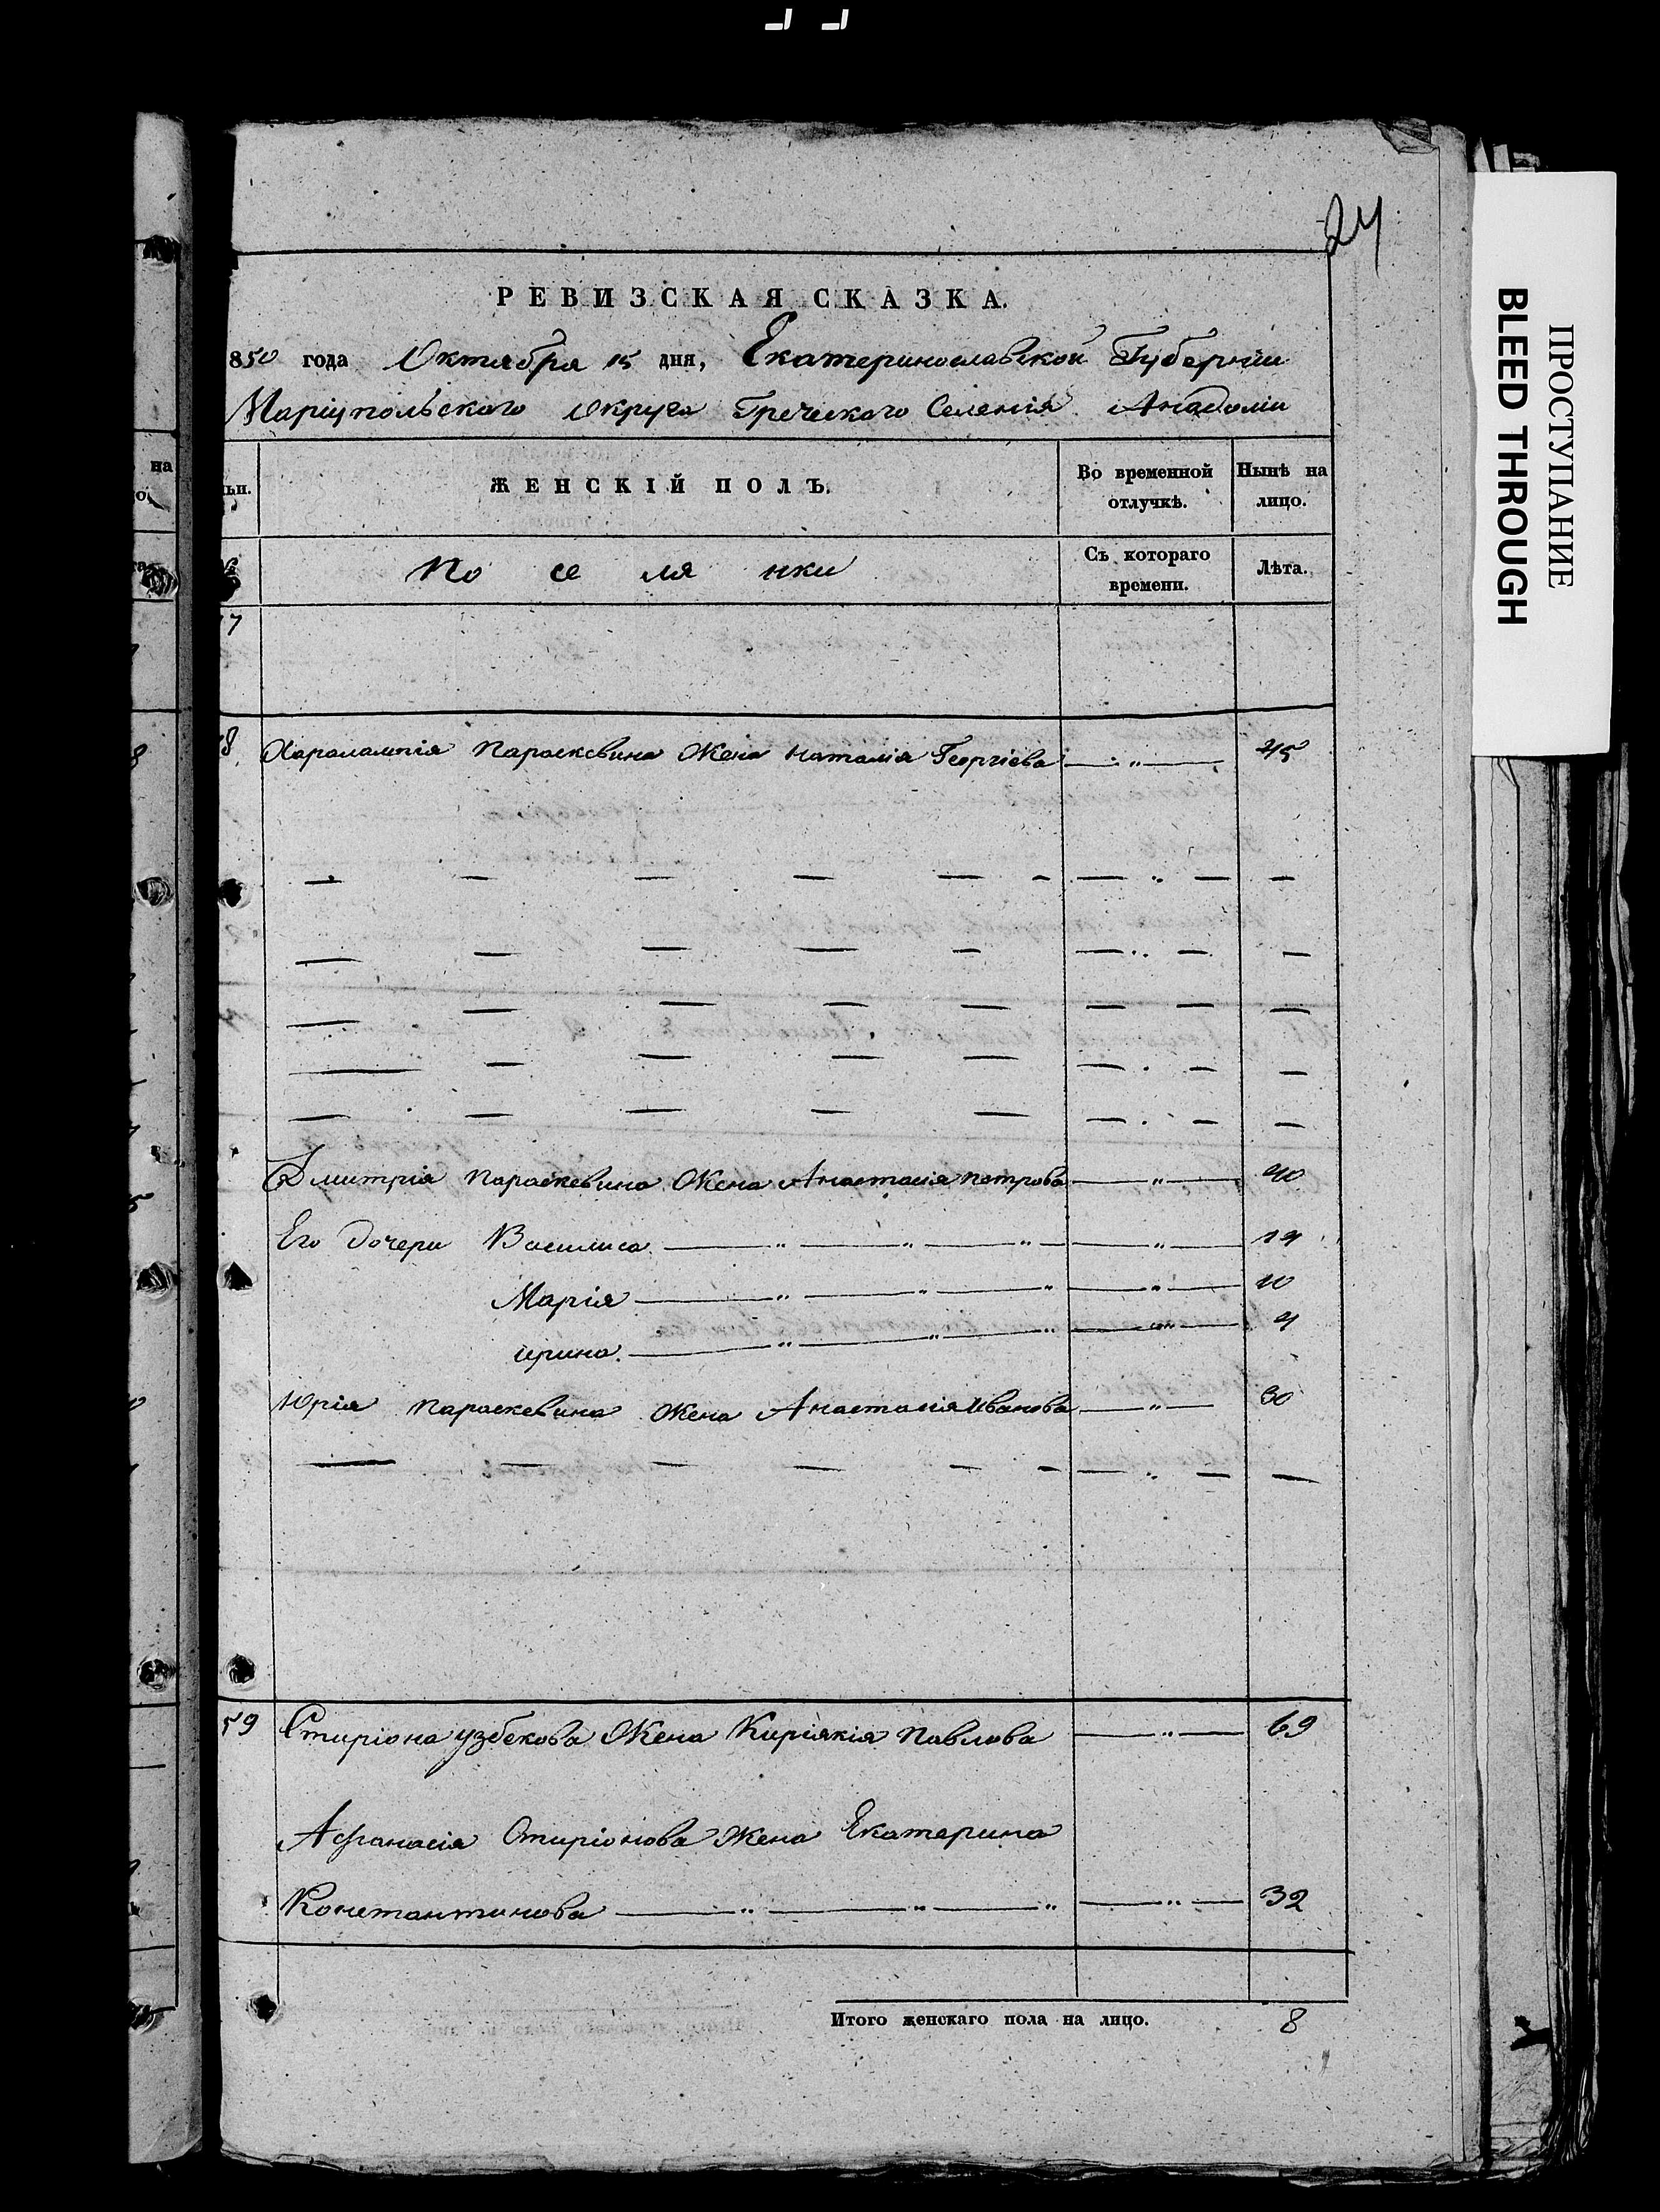 24
РЕВИЗСКАЯ СКАЗКА.
850 года Октября 15 дня, Екатеринославской Губерніи
Маріупольского Округа Греческого Селенія Анадоліи
ьн. ЖЕНСКІЙ ПОЛЪ. Во временной отлучкѣ. Нынѣ на лицо.
По се ля нки Съ котораго времени. Лѣта.
7
8 Харалампія Параскевина Жена Наталія Георгіева — „ — 45
Дмитрія Параскевина Жена Анастасія Петрова — „ — 40
Его Дочери Василиса — „ — „ — „ — „ — 14
Марія — „ — „ — „ — „ — 10
Ирина. — „ — „ — „ — „ — 4
Юрія Параскевина Жена Анастасія Иванова — „ — 30
59 Стиріона Узбекова Жена Киріякія Павлова — „ — 69
Афанасія Стиріонова Жена Екатерина
Константинова — „ — „ — „ — „ — 32
Итого женскаго пола на лицо. 8
на
8
ПРОСТУПАНИЕ
BLEED THROUGH